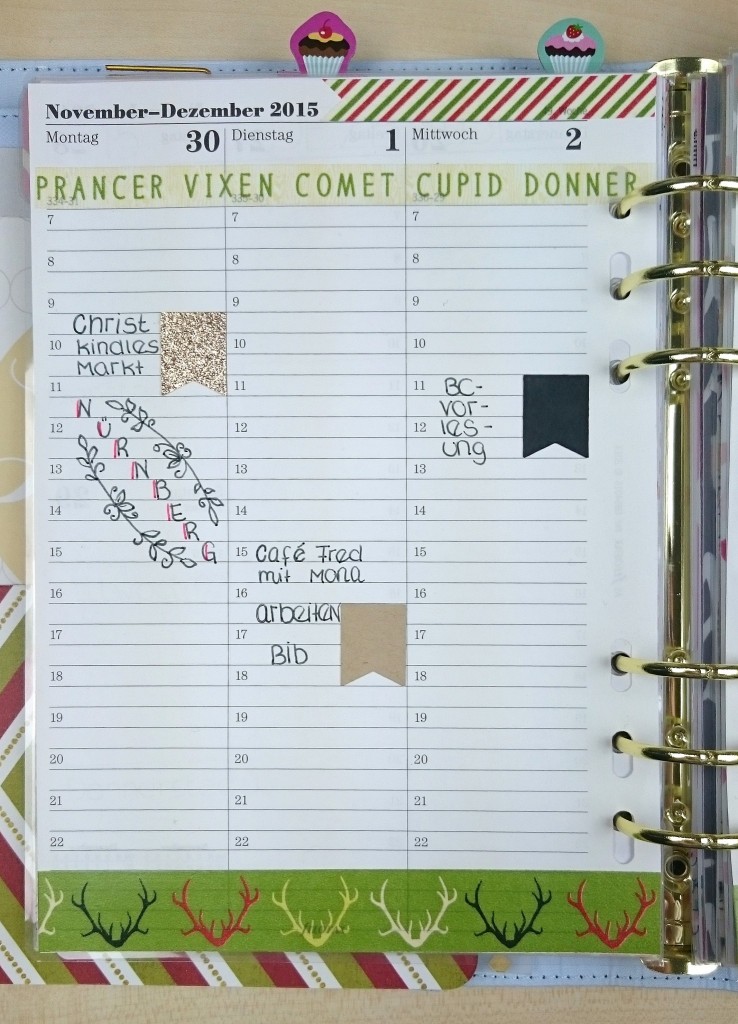 November–Dezember 2015
Montag 30
Dienstag 1
Mittwoch 2
PRANCER VIXEN COMET CUPID DONNER
7
8
9
10
11
12
13
14
15
16
17
18
19
20
21
22
Christ
kindles
Markt
NÜRNBERG
7
8
9
10
11
12
13
14
15
16
17
18
19
20
21
22
Café Fred
mit Mona
arbeiten
Bib
7
8
9
10
11
12
13
14
15
16
17
18
19
20
21
22
BC-
vor-
les-
ung